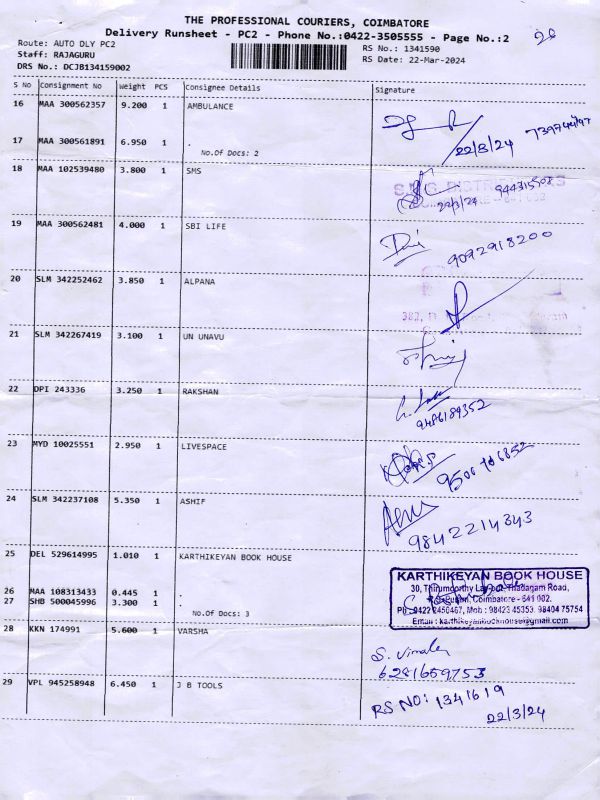 THE PROFESSIONAL COURIERS, COIMBATORE
Delivery Runsheet - PC2 - Phone No.:0422-3505555 - Page No.:2
Route: AUTO DLY PC2
Staff: RAJAGURU
DRS No.: DCJB134159002
RS No.: 1341590
RS Date: 22-Mar-2024
S No Consignment No Weight PCS Consignee Details Signature
16 MAA 300562357 9.200 1 AMBULANCE
17 MAA 300561891 6.950 1 .
No.Of Docs: 2
22/3/24
18 MAA 102539480 3.800 1 SMS
22/3/24
19 MAA 300562481 4.000 1 SBI LIFE
9092918200
20 SLM 342252462 3.850 1 ALPANA
21 SLM 342267419 3.100 1 UN UNAVU
22 DPI 243336 3.250 1 RAKSHAN
9486189352
23 MYD 10025551 2.950 1 LIVESPACE
24 SLM 342237108 5.350 1 ASHIF
9842214343
25 DEL 529614995 1.010 1 KARTHIKEYAN BOOK HOUSE
KARTHIKEYAN BOOK HOUSE
30, Thirumoorthy Layout, Thadagam Road,
Coimbatore - 641 002.
Ph: 0422 2450467, Mob : 98423 45353, 98404 75754
Email : karthikeyanbookhouse@gmail.com
26 MAA 108313433 0.445 1 .
27 SHB 500045996 3.300 1 .
No.Of Docs: 3
28 KKN 174991 5.600 1 VARSHA
S. Vimala
6281659753
29 VPL 945258948 6.450 1 J B TOOLS
RS NO: 1341619
22/3/24